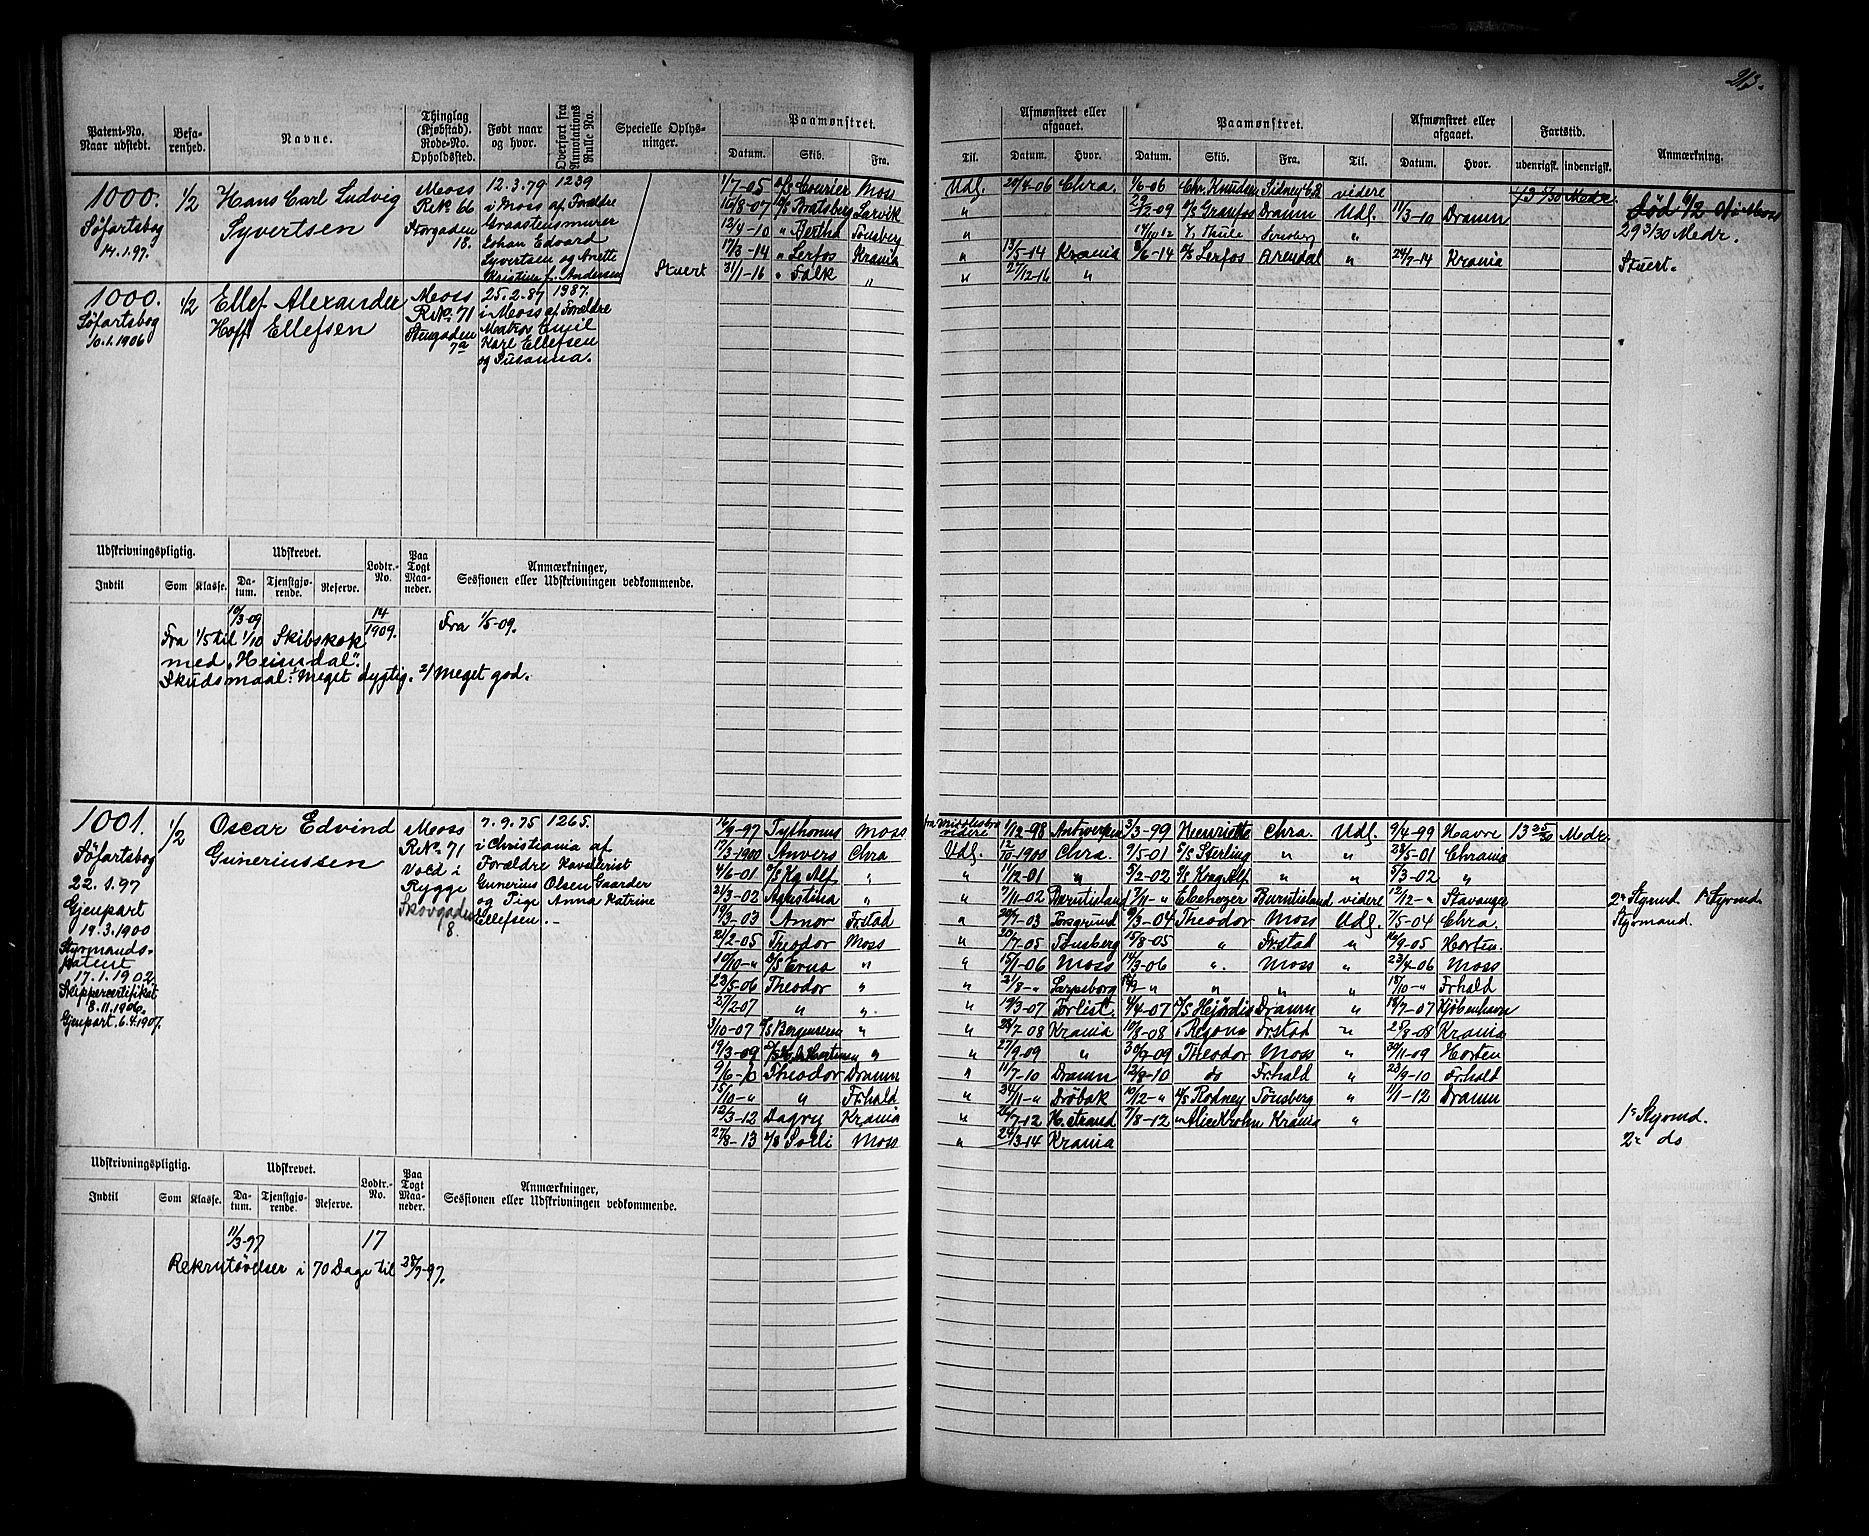 213.
Patent-No. Naar udstedt.
Befarenhed.
Navne.
Thinglag (Kjøbstad). Rode-No. Opholdssted.
Født naar og hvor.
Overført fra Annotations Rulle No.
Specielle Oplysninger.
Paamønstret.
Datum. Skib. Fra.
Til.
Afmønstret eller afgaaet.
Datum. Hvor.
Paamønstret.
Datum. Skib. Fra. Til.
Afmønstret eller afgaaet.
Datum. Hvor.
Fartstid.
udenrigsk. indenrigsk.
Anmærkning.
1000.
Søfartsbog
14.1.97.
1/2
Hans Carl Ludvig
Syvertsen
Moss
R.No 66
Storgaden
18.
12.3.79 1239
i Moss af Forældre
Graastensmurer
Johan Edvard
Syvertsen og Anette
Kristine f. Andersen
Stuert
1/7-05 Courier Moss Udl. 20/4-06 Chra. 1/6-06 Chr. Knudsen Sidney C.B. videre
16/8-07 Bratsberg Larvik " 29/12-09 Granfos Dramn Udl. 11/3-10 Dramn
12/4-10 " Bertha Tønsberg " 14/10 12 Thule Tønsberg "
17/3-14 " Lerfos Krania " 13/5-14 Krania 8/6-14 Lerfos Arendal " 24/7-14 Krania
31/1-16 " Falk " " 27/12-16 "
13 5/30 Medr.
29 3/30 Medr.
Stuert.
1000.
Søfartsbog
10.1.1906
1/2
Ellef Alexander
Hoff Ellefsen
Moss
R.No. 71
Stengaden
7a
25.2.87 1387.
i Moss af Forældre
Matros Emil
Karl Ellefsen
og Susanna.
Udskrivningspligtig.
Indtil Som Klasse.
Udskrevet.
Datum. Tjenstgjørende. Reserve.
Lodtr.-No.
Paa Togt Maaneder.
Anmærkninger,
Sessionen eller Udskrivningen vedkommende.
10/3-09 14/1909.
Fra 1/5-09.
Fra 1/5 til 1/10 Skibskok
med "Heimdal".
Skudsmaal: Meget dygtig. 2/ Meget god.
1001.
Søfartsbog
22.1.97
Gjenpart
19.3.1900
Styrmands-
patent
17.1.1902.
Skippercertifikat
8.11.1906.
Gjenpart 6.4.1907.
1/2
Oscar Edvind
Guneriussen
Moss
R.No. 71
Vold i
Rygge
Skovgaden
8.
7.9.75 1265.
i Christiania af
Forældre Kavallerist
Gunerius Olsen Gaarder
og Pige Anna Katrine
Ellefsen.-
16/9-97 Tythonus Moss fra Middlesbro videre 1/12-98 Antwerpen 3/3-99 Henriette Chra. Udl. 9/4-99 Havre 13 25/30 Medr.
17/3-1900 Anvers Chra Udl. 12/10-1900 Chra. 9/5-01 S/S Sterling " " 28/5-01 Chrania
4/6-01 Kg Alf " " 11/12-01 " 3/2-02 Kong Alf " " 5/3-02 "
21/3-02 Agustina " " 7/11-02 Burntisland 17/11-" Ebenezer Burntisland videre 12/12-" Stavanger 2n Styrmd 1n Styrmd.
19/3-03 Amor Fr.stad " 20/7-03 Porsgrund 8/3-04 Theodor Moss Udl. 7/5-04 Chra. Styrmand.
21/2-05 Theodor Moss " 20/7-05 Tønsberg 15/8-05 " Fr.stad " 16/9-05 Horten.
10/10-" Erna " " 15/1-06 Moss 14/3-06 " Moss " 23/4-06 Moss
23/5-06 Theodor " " 21/8-" Sarpsborg 18/9-" " " " 18/10-" Fr.hald
27/2-07 " " " 19/3-07 Forlist 4/4-07 Hjørdis Dramn " 18/7-07 Kjøbenhavn
3/10-07 Bergenseren " " 28/7 08 Krania 10/8-08 Regona Fr.stad " 29/8-08 Krania
19/3-09 " " 27/9-09 " 30/9-09 Theodor Moss " 30/11-09 Horten
9/6-10 Theodor Dramn " 11/7-10 Dramn 12/8-10 do Fr.hald " 23/9-10 Fr.hald
15/10-" " Fr.hald " 24/11-" Drøbak 10/12-" Rodney Tønsberg " 11/1-12 Dramn
12/3-12 Dagny Krania " 26/7-12 H.strand 7/8-12 " Alice Krohn Krania " 1e Styrmd.
27/8-13 Solli Moss " 24/3-14 Krania 2n do
Udskrivningspligtig.
Indtil Som Klasse.
Udskrevet.
Datum. Tjenstgjørende. Reserve.
Lodtr.-No.
Paa Togt Maaneder.
Anmærkninger,
Sessionen eller Udskrivningen vedkommende.
11/3-97 17
Rekrutøvelser i 70 Dage til 30/9-97.